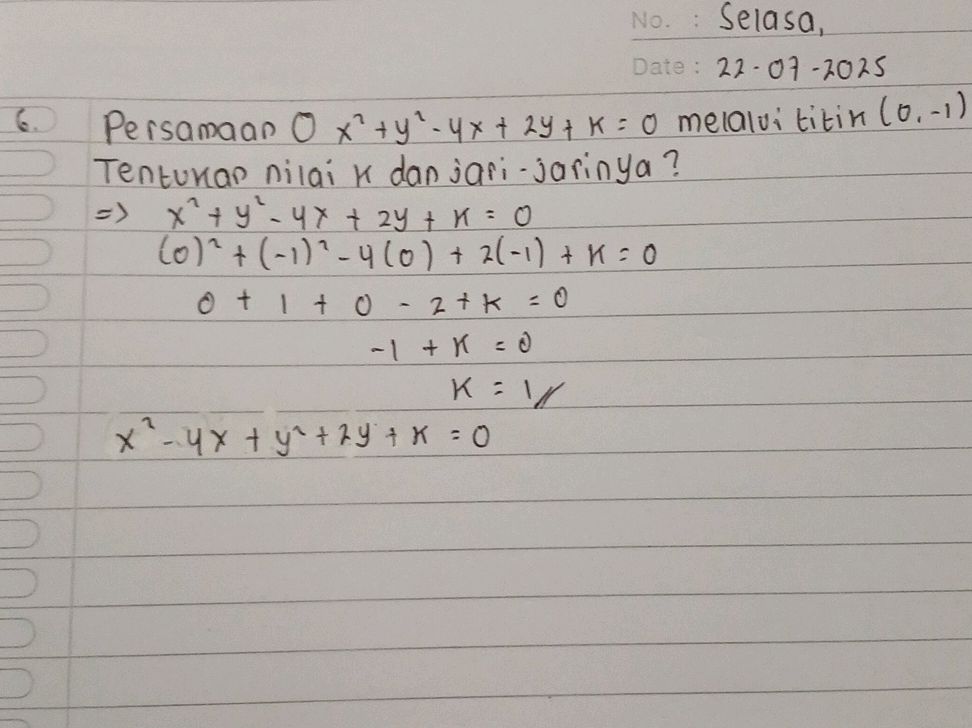 No. : Selasa,
Date : 22-07-2025
6. Persamaan O x² + y² - 4x + 2y + k = 0 melalui titik (0, -1)
Tentukan nilai k dan jari-jarinya?
=> x² + y² - 4x + 2y + k = 0
(0)² + (-1)² - 4(0) + 2(-1) + k = 0
0 + 1 + 0 - 2 + k = 0
-1 + k = 0
k = 1//
x² - 4x + y² + 2y + k = 0